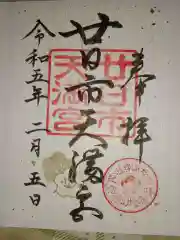 奉拝
廿日市天満宮
令和五年 二月 五日
廿日市
天満宮